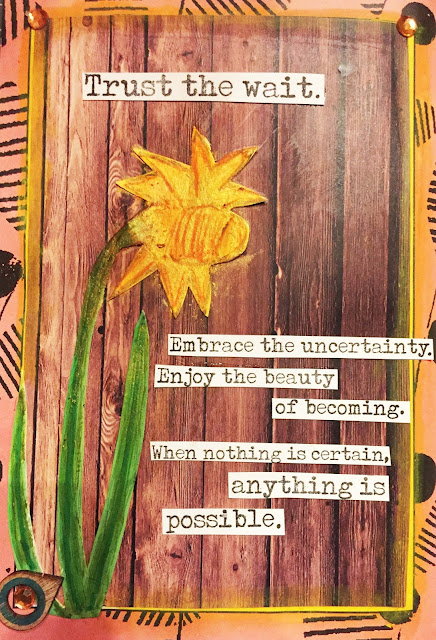 Trust the wait.
Embrace the uncertainty.
Enjoy the beauty
of becoming.
When nothing is certain,
anything is
possible.